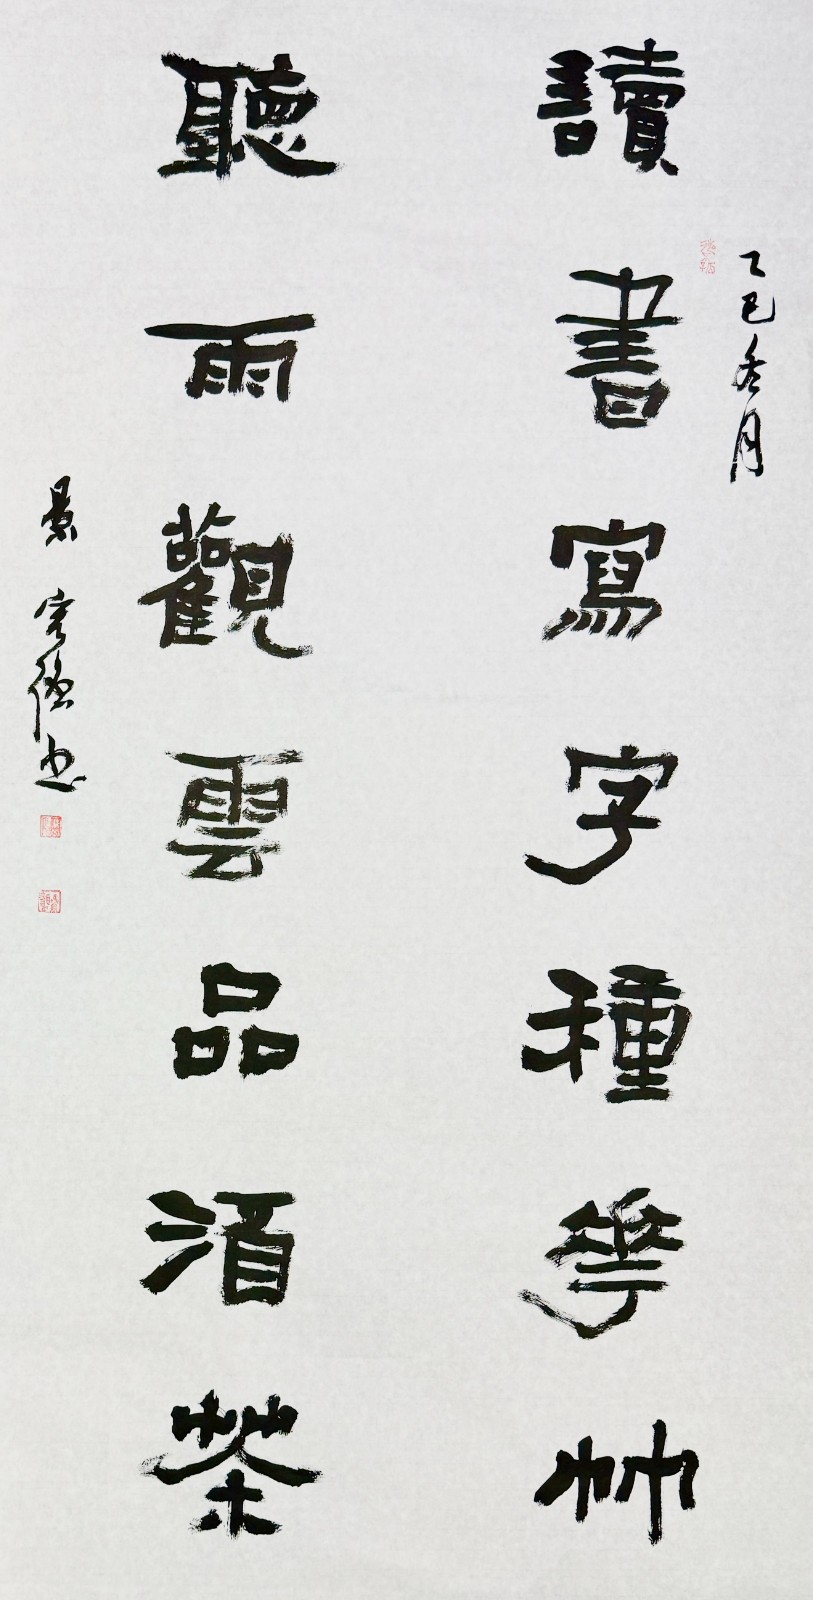 乙巳冬月
讀書寫字種花艸
聽雨觀雲品酒茶
景宏德书